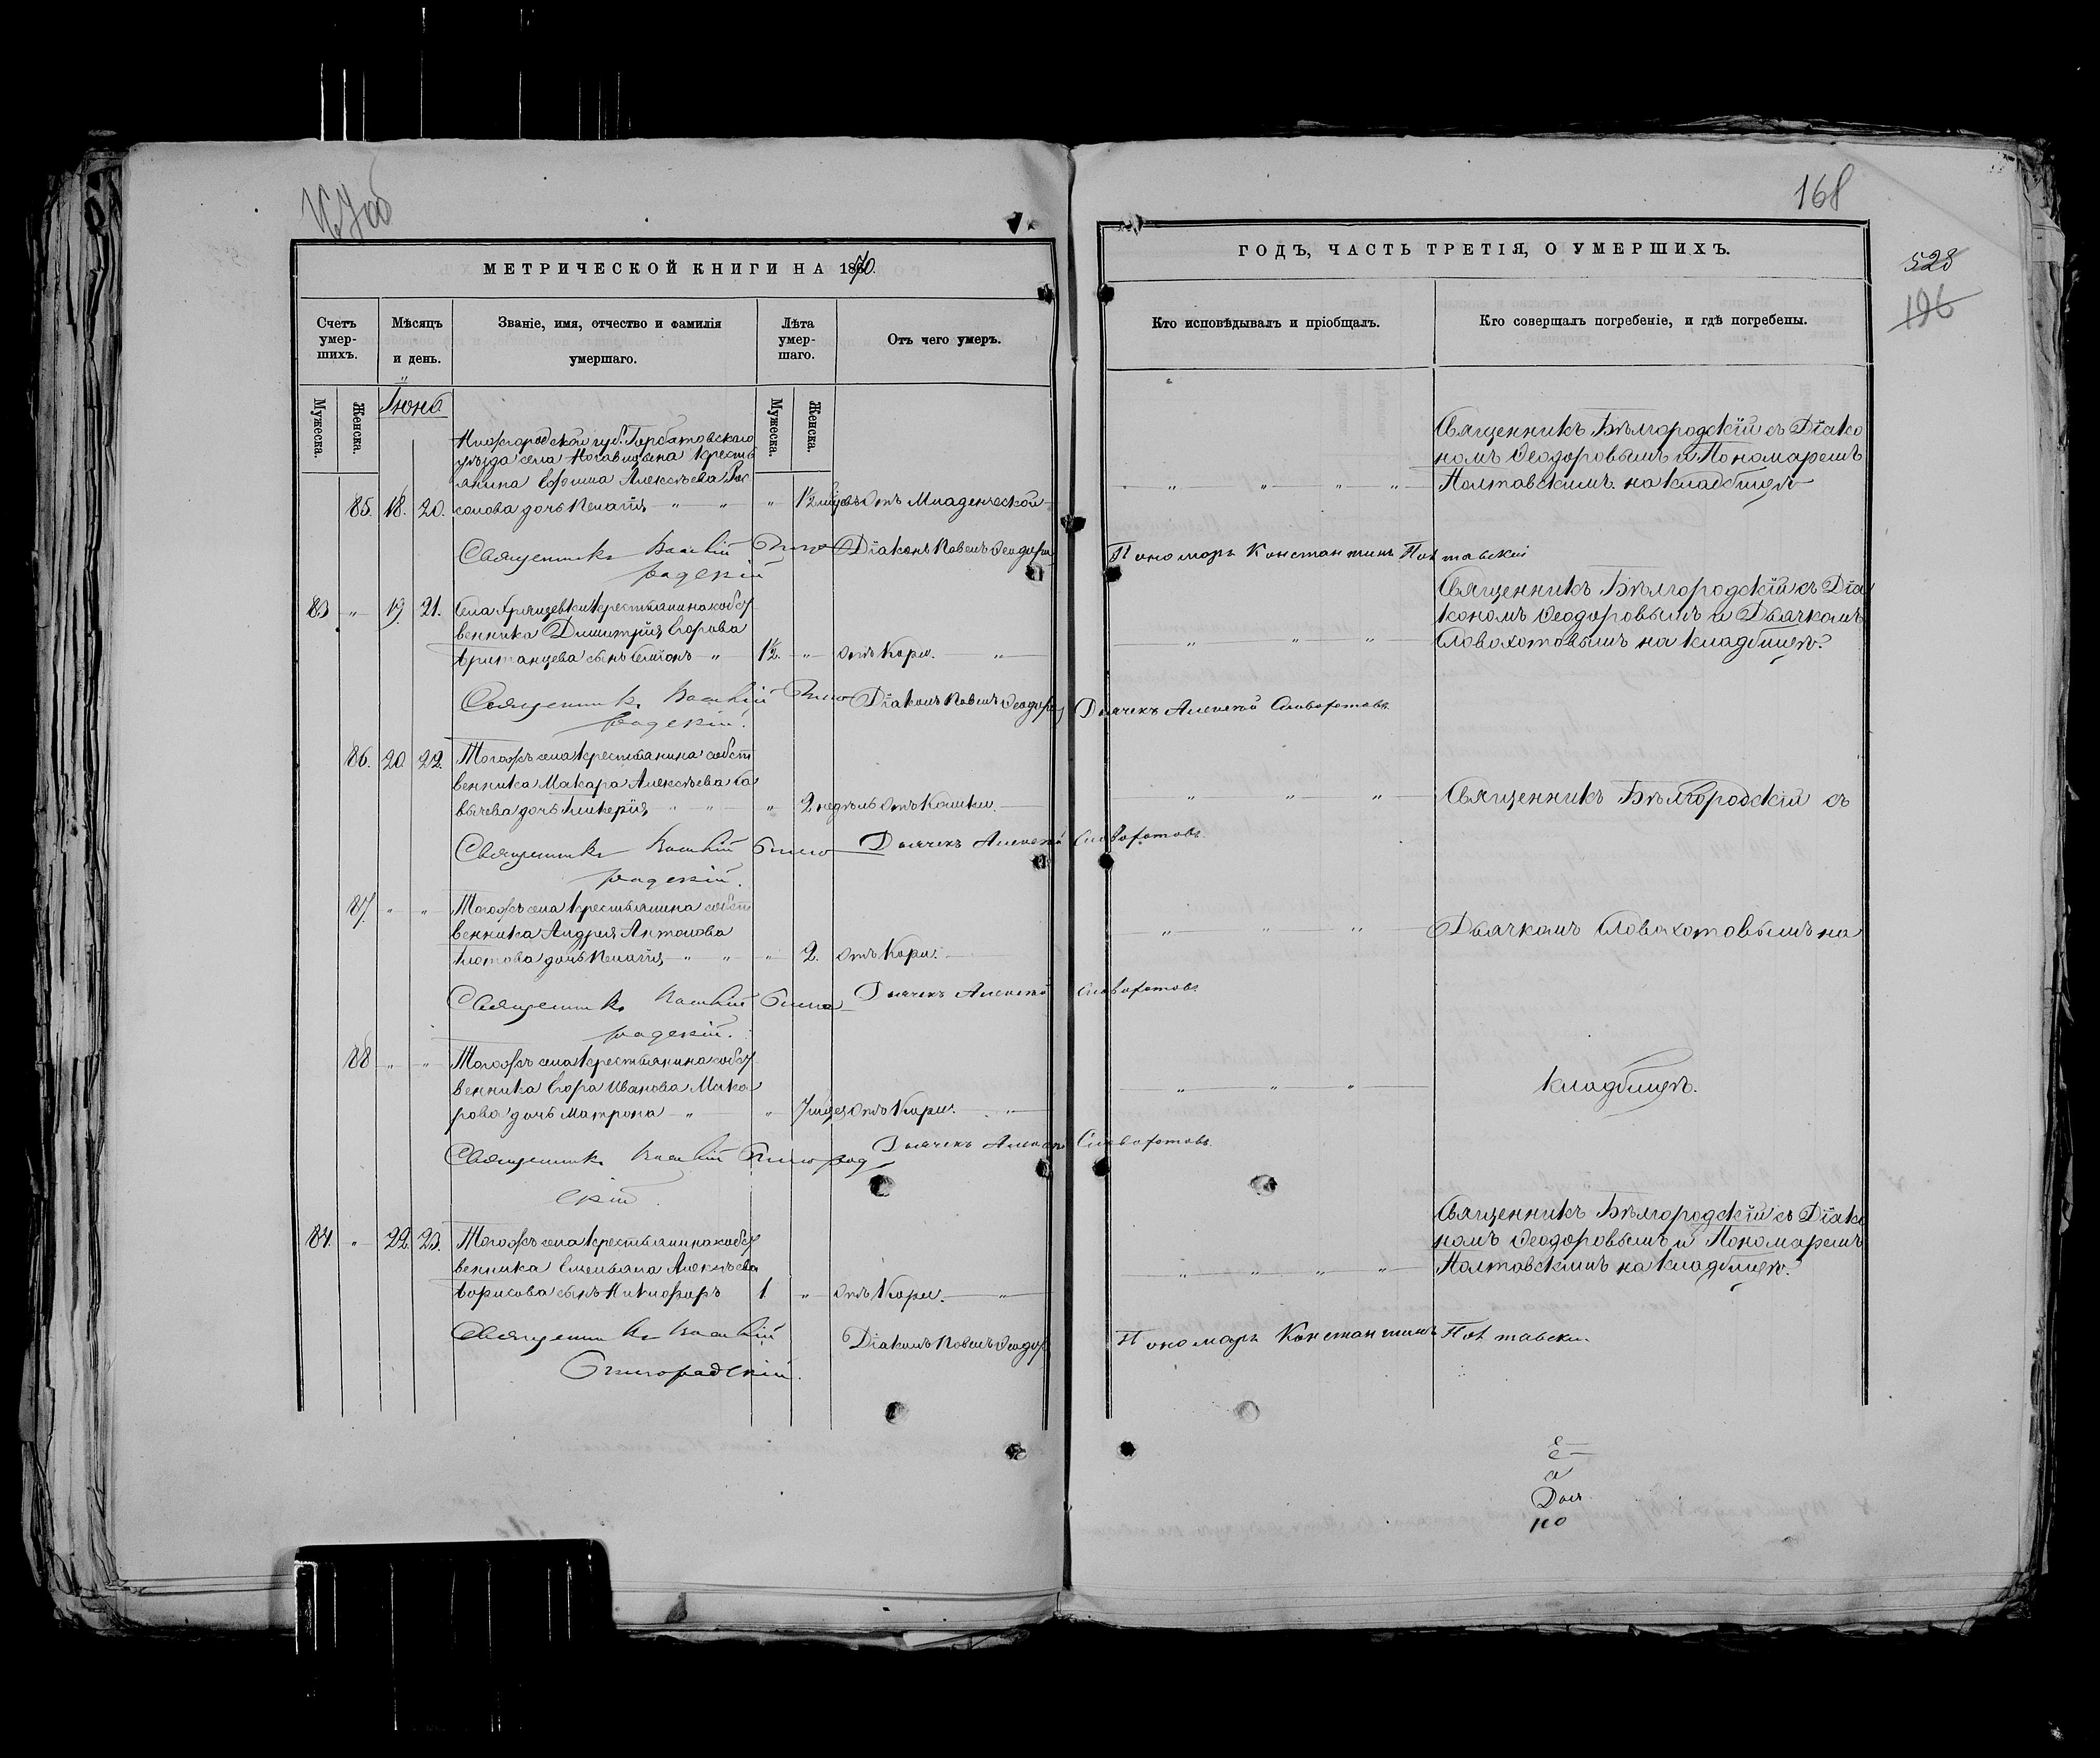 168
МЕТРИЧЕСКОЙ КНИГИ НА 1870.
ГОДЪ, ЧАСТЬ ТРЕТІЯ, О УМЕРШИХЪ.
528
196
Счетъ умер-шихъ.
Мѣсяцъ и день.
Званіе, имя, отчество и фамилія умершаго.
Лѣта умер-шаго.
Отъ чего умеръ.
Кто исповѣдывалъ и пріобщалъ.
Кто совершалъ погребеніе, и гдѣ погребены.
Мужеска.
Женска.
Мужеска.
Женска.
Іюнь
Нижегородской губ. Горбатовскаго
уѣзда села крестья
янина Ефима Алексѣева
85. 18. 20. дочь Пелагія 1½ Отъ Младенческой
Священникъ Бѣлгородскій съ Діако
номъ Ѳеодоровымъ и Пономаремъ
Полтавскимъ на кладбищѣ
Священникъ Василій Бѣлго
радскій
Діаконъ Павелъ Ѳеодоро
Пономарь Константинъ Полтавскій
83 " 19. 21. Села крестьянина собст
венника Димитрія Егорова
сынъ Симеонъ 1½ " отъ Кори.
Священникъ Бѣлгородскій съ Діа
кономъ Ѳеодоровымъ и Дьячкомъ
Словохотовымъ на кладбищѣ.
Священникъ Василій Бѣлго
радскій.
Діаконъ Павелъ Ѳеодоро
Дьячекъ Алексѣй Словохотовъ
86. 20. 22. Тогожъ села крестьянина собст
венника Макара Алексѣева Са
вычева дочь Гликерія " 2 недѣль Отъ Кашля.
Священникъ Бѣлгородскій съ
Священникъ Василій Бѣлго
радскій.
Дьячекъ Алексѣй Словохотовъ
87. " " Тогожъ села крестьянина собст
венника Андрея Антонова
дочь Пелагія " 2. отъ Кори.
Дьячкомъ Словохотовымъ на
Священникъ Василій Бѣлго
радскій.
Дьячекъ Алексѣй Словохотовъ
88 " " Тогожъ села крестьянина собст
венника Егора Иванова Мака
рова дочь Матрона " 7 мѣсяц Отъ Кори.
кладбищѣ.
Священникъ Василій Бѣлгорад
скій.
Дьячекъ Алексѣй Словохотовъ
84. " 22. 23. Тогожъ села крестьянина собст
венника Емельяна Алексѣева
Борисова сынъ Никифоръ 1. " отъ Кори.
Священникъ Бѣлгородскій съ Діако
номъ Ѳеодоровымъ и Пономаремъ
Полтавскимъ на кладбищѣ.
Священникъ Василій
Бѣлгорадскій.
Діаконъ Павелъ Ѳеодор
Пономарь Константинъ Полтавскій